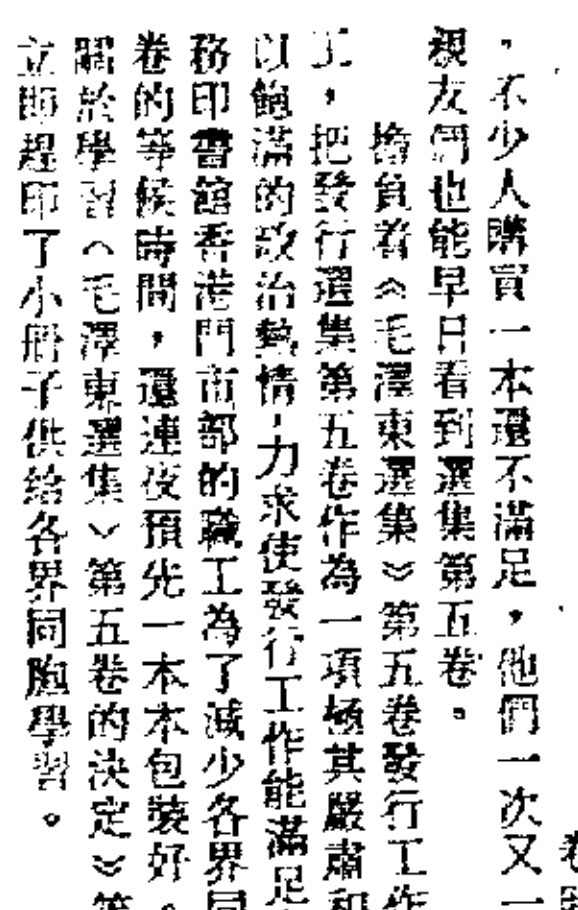 ，不少人購買一本還不滿足，他們一次又一
親友們也能早日看到選集第五卷。
擔負着《毛澤東選集》第五卷發行工作
工，把發行選集第五卷作為一項極其嚴肅和
以飽滿的政治熱情，力求使發行工作能滿足
務印書館香港門市部的職工為了減少各界同
卷的等候時間，還連夜預先一本本包裝好。
關於學習〈毛澤東選集〉第五卷的決定》等
立即趕印了小冊子供給各界同胞學習。